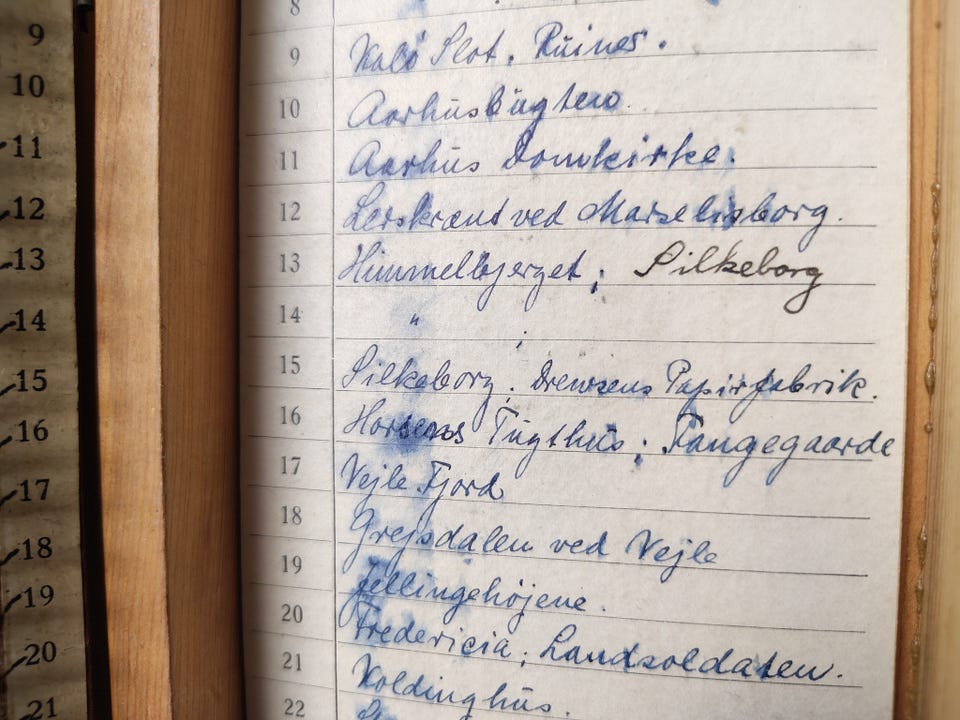 8
9 Kalö Slot. Ruiner.
10 Aarhusbugten
11 Aarhus Domkirke.
12 Lerskrænt ved Marselisborg.
13 Himmelbjerget; Silkeborg
14 " ;
15 Silkeborg. Drewsens Papirfabrik.
16 Horsens Tugthus; Fangegaarde
17 Vejle Fjord
18 Grejsdalen ved Vejle
19 Jellingehöjene.
20 Fredericia; Landsoldaten.
21 Koldinghus.
22
9
10
11
12
13
14
15
16
17
18
19
20
21